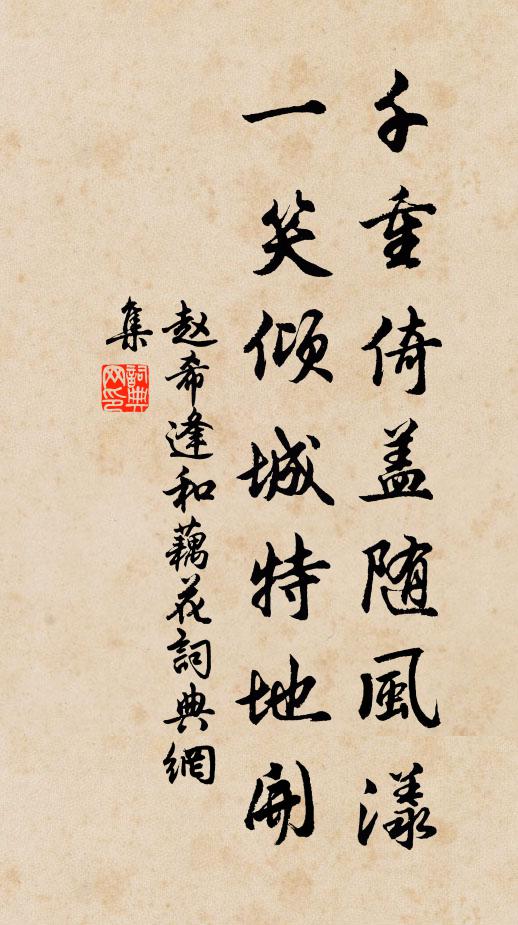 千重倚盖随風漾
一笑倾城特地開
赵希逢和藕花詞典網
集
詞典
网印